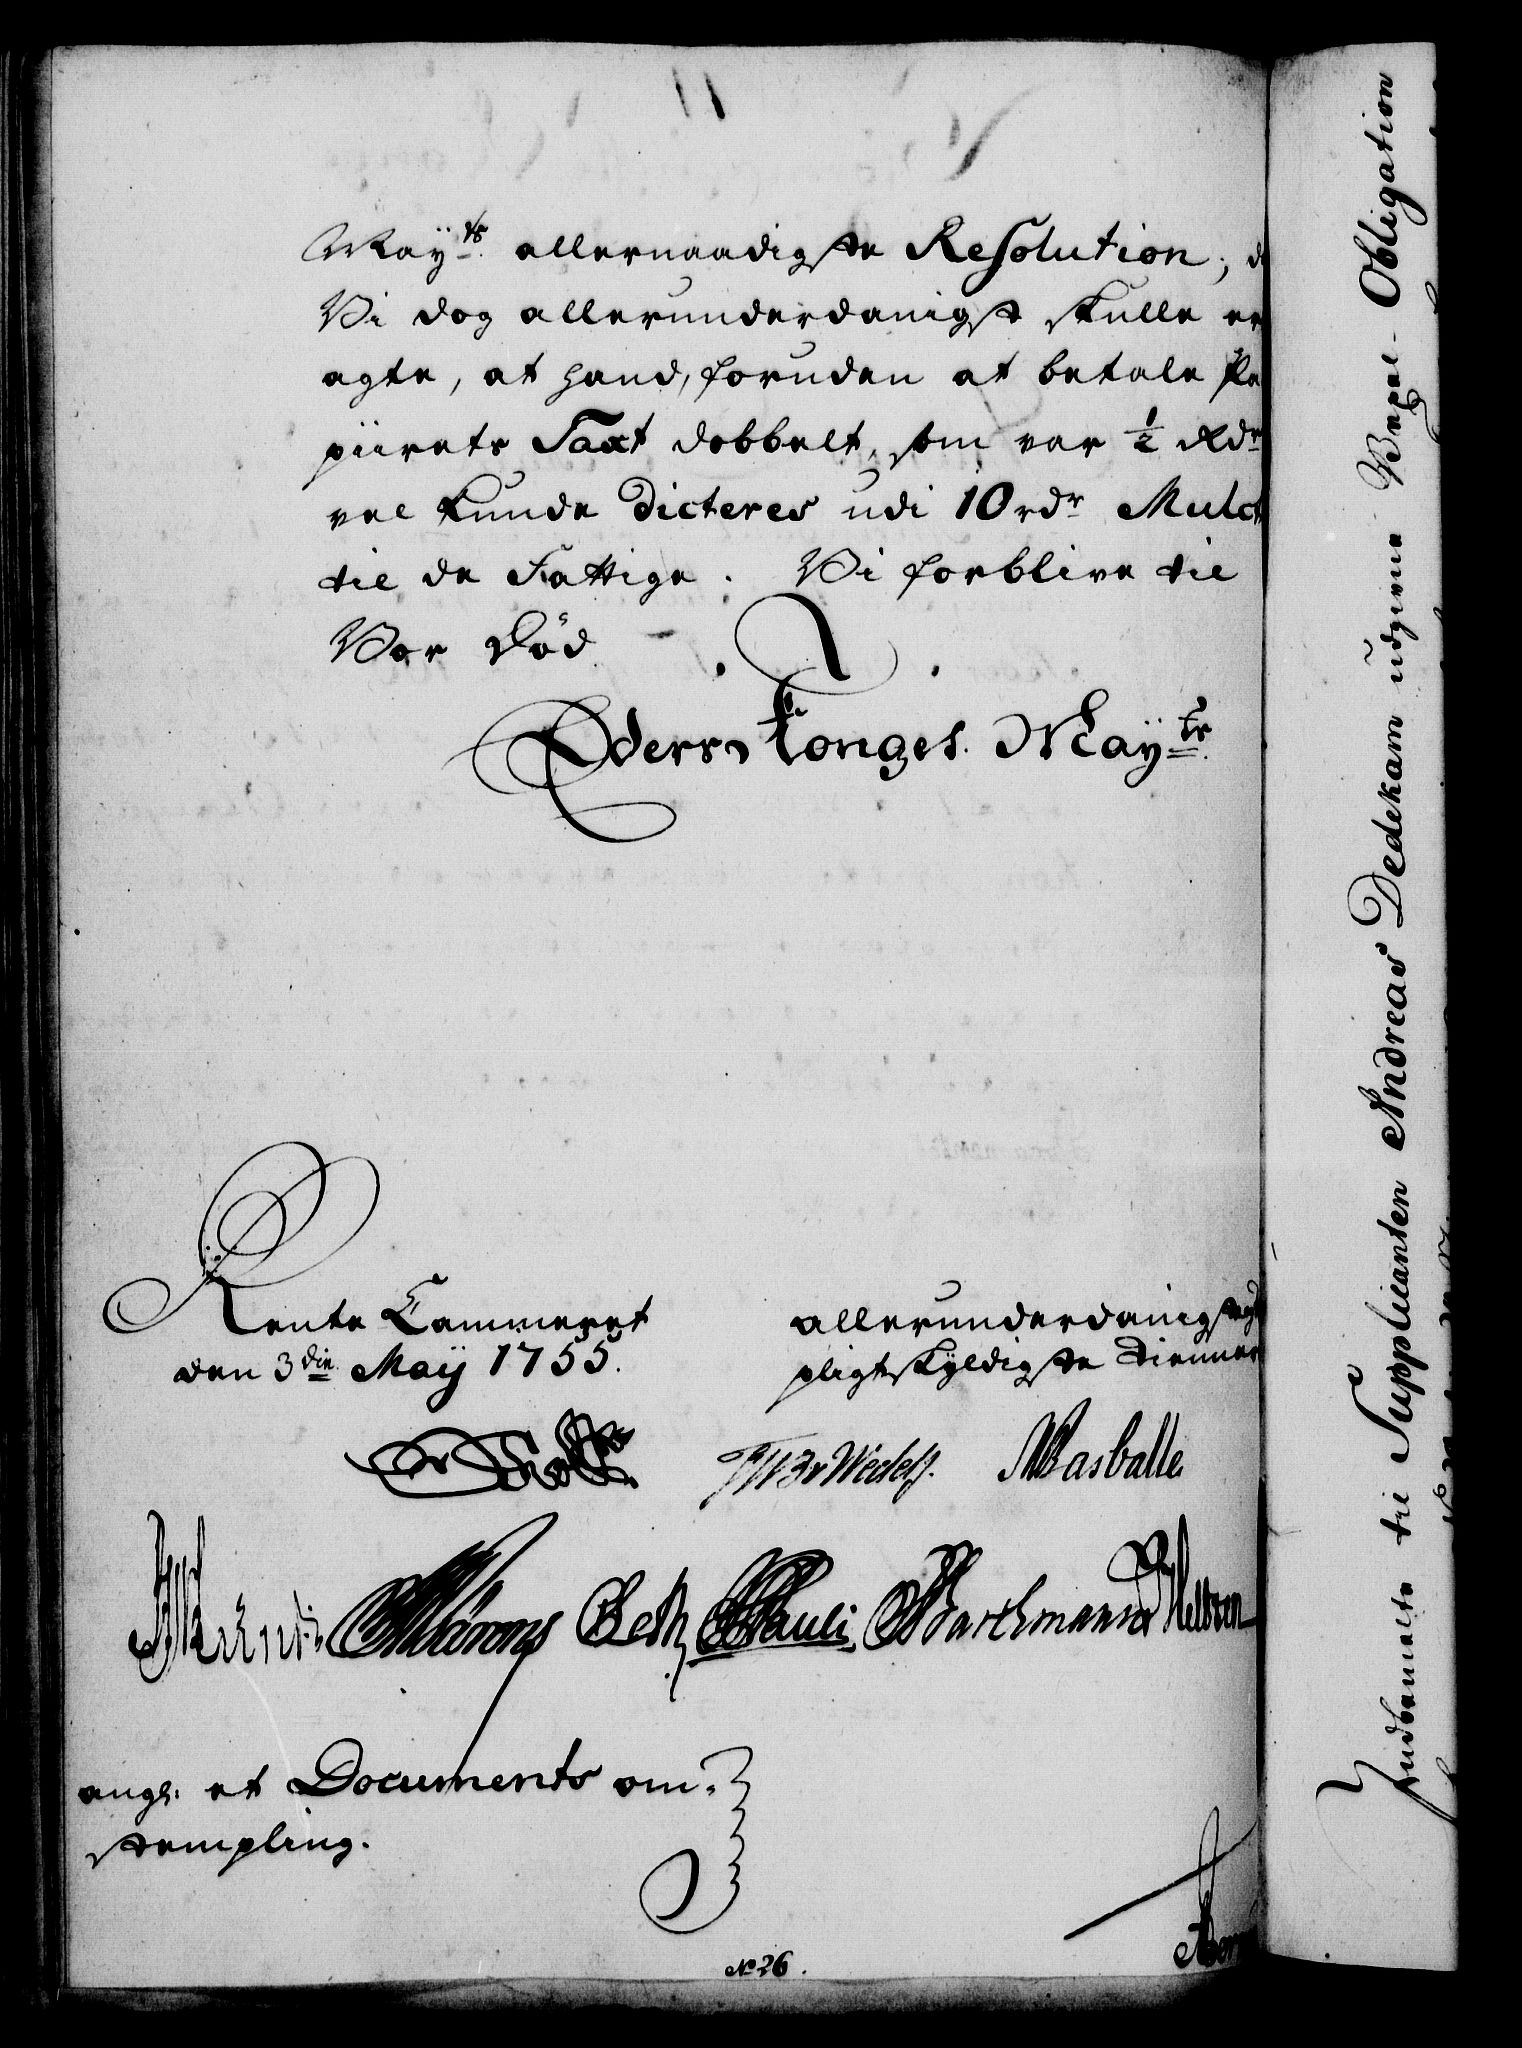 May:ts allernaadigste Resolution; d
Vi dog allerunderdanigst skulle er
agte, at hand, foruden at betale Pa
piirets Taxt dobbelt, som var ½ Rdr
vel kunde dicteres udi 10 rdr Mulct
til de Fattige. Vi forblive til
Vor Død
Eders Konges. May:ts
Rente Cammeret
den 3die Maÿ 1755.
allerunderdanigste
pligtskyldigste Tienner
Wedell. Masballe
Beck Pauli Barthmann
ang: et Documents om-
stempling.
No 26.
Indbemelte til Supplicanten Andreas Dedekam udgivne Vexel-Obligation